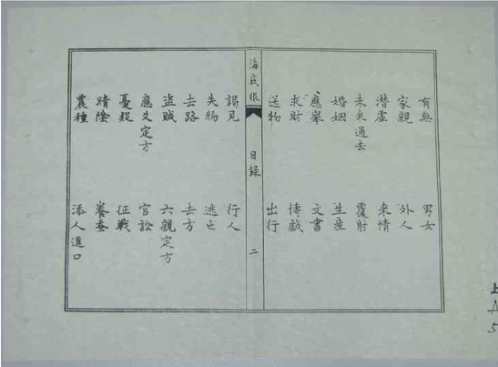 有無 男女
家親 外人
潛虛 來情
未來過去 覆射
婚姻 生產
應舉 文書
求財 博戲
送物 出行
海底眼 目錄 二
謁見 行人
失物 逃亡
去路 去方
盜賊 六親定方
應爻定方 官訟
憂疑 征戰
晴陰 養蚕
農種 添人進口
上